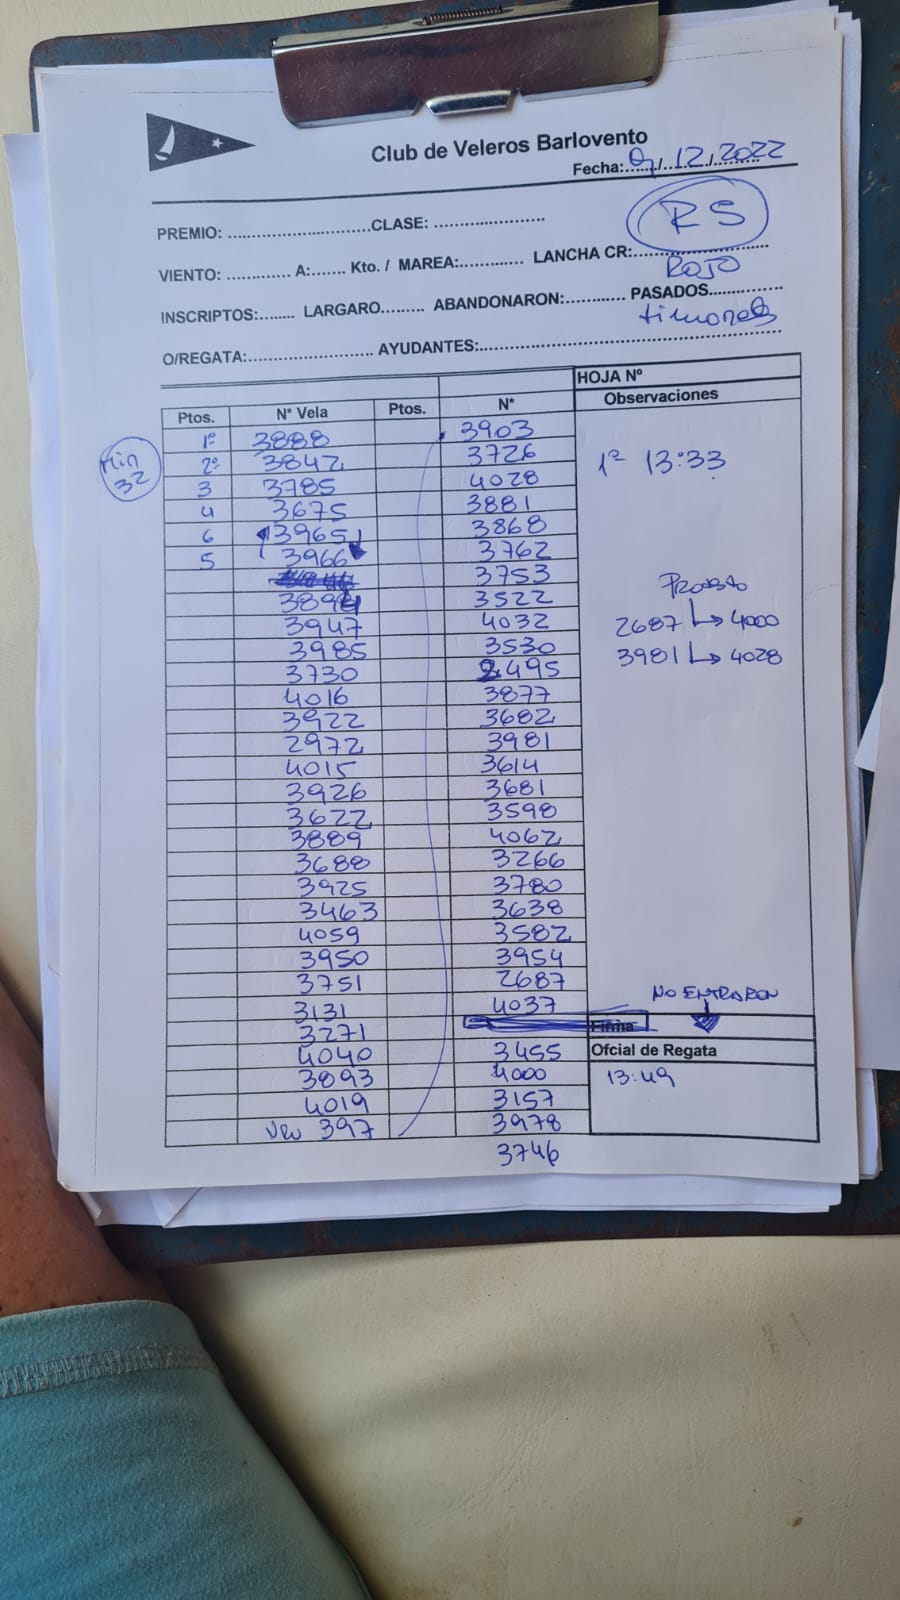 Club de Veleros Barlovento
Fecha: 9/12/2022
PREMIO: ........................CLASE: ......................
RS
VIENTO: ............. A:....... Kto. / MAREA:............ LANCHA CR:..........................
ROJO
INSCRIPTOS:........ LARGARO......... ABANDONARON:........... PASADOS...............
timoneles
O/REGATA:......................... AYUDANTES:............................................................
HOJA Nº
Ptos. N* Vela Ptos. N* Observaciones
Min 32
1º 3888 3903
2º 3842 3726 1ª 13:33
3 3785 4028
4 3675 3881
6 3965 3868
5 3966 3762
3753
3894 3522
3947 4032
3985 3530
3730 2495
4016 3877
3922 3682
2972 3981
4015 3614
3926 3681
3622 3598
3889 4062
3688 3266
3925 3780
3463 3638
4059 3582
3950 3954
3751 2687
3131 4037
3271
4040 3455
3893 4000
4019 3157
397 3978
3746
2687 → 4000
3981 → 4028
NO ENTRARON
Firma
Ofcial de Regata
13:49